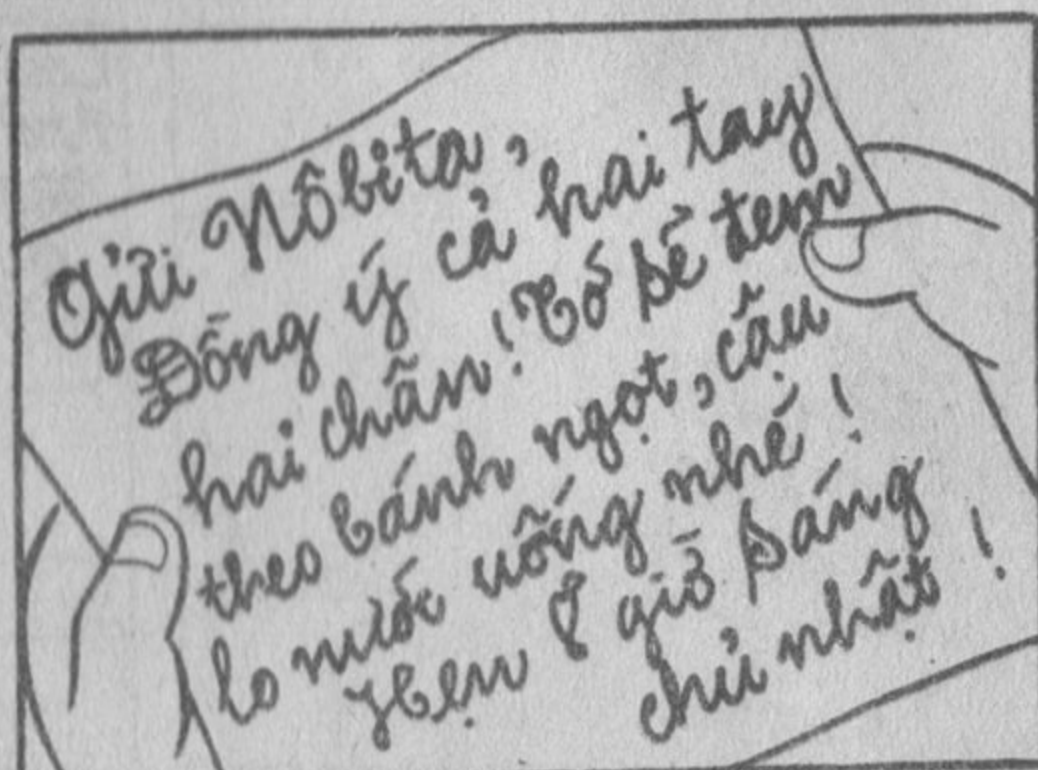 Gửi Nôbita,
Đồng ý cả hai tay
hai chân! Tớ sẽ đem
theo bánh ngọt, cậu
lo nước uống nhé!
Hẹn 8 giờ sáng
chủ nhật!